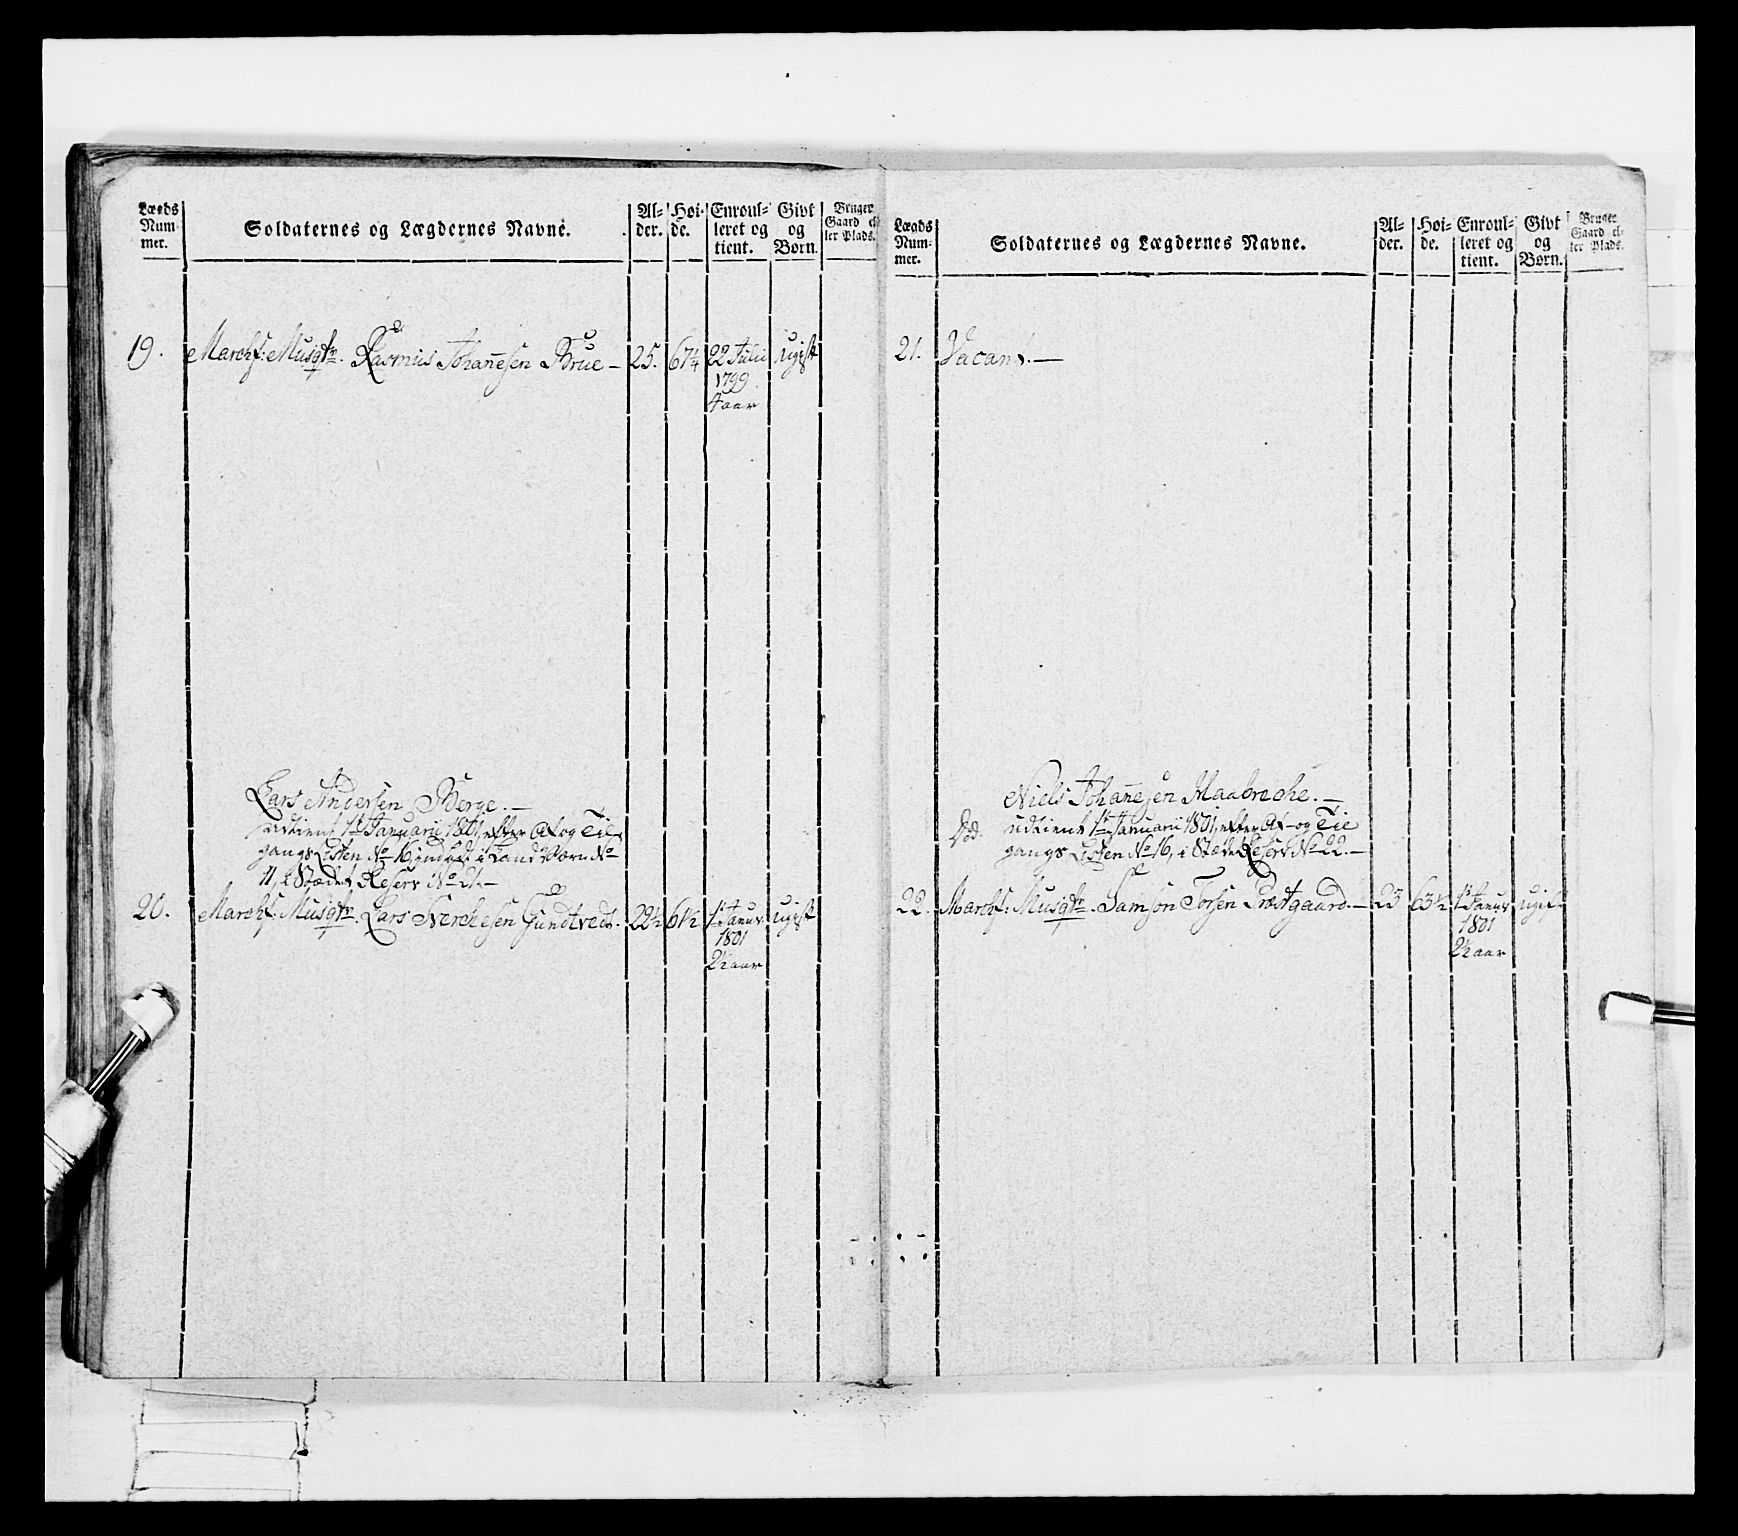 Lægds Nummer.
Soldaternes og Lægdernes Navne.
Alder.
Høide.
Enroulleret og tient.
Givt og Børn.
Bruger Gaard eller Plads.
19. Marchf: Musqtr. Rasmus Johanesen Brue – 25. 67¼ 22 Julii ugift
1799
4 aar
Lars Andersen Berge. –
udtient 1te Januarii 1801, efter Af og Til-
gangs Listen No 16, indsat i Land Værn No
11, i Stædet Reserv No 21. –
20. Marchf: Musqtr. Lars Sverchesen Gundtvedt. 22½ 61½ 1te Januar ugift
1801
2½ aar
Lægds Nummer.
Soldaternes og Lægdernes Navne.
Alder.
Høide.
Enroulleret og tient.
Givt og Børn.
Bruger Gaard eller Plads.
21. Vacant. –
Niels Johanesen Maabreche. –
udtient 1te Januarii 1801, efter Af- og Til
gangs Listen No 16, i Stædet Reserv No 22. –
22. Marchf: Musqtr. Samson Torsen Præstgaard. – 23 63½ 1te Januar ugift
1801
2½ aar